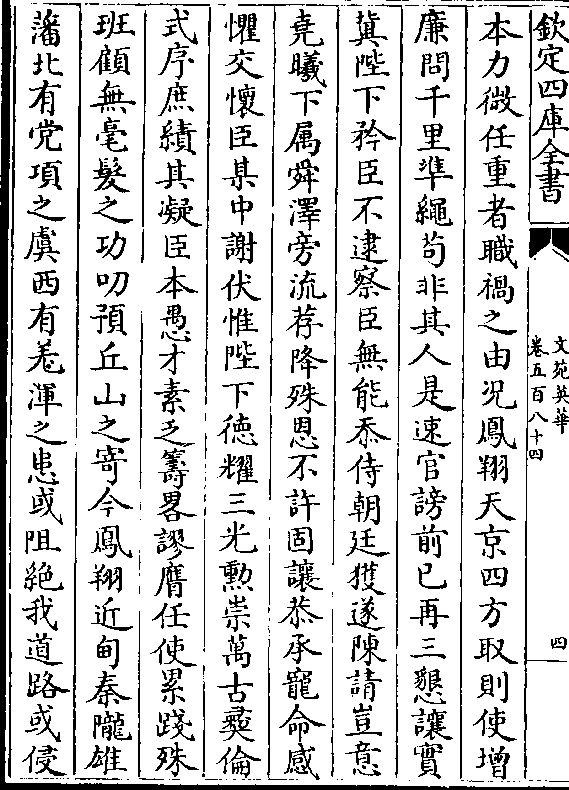 欽定四庫全書
文苑英華
卷五百八十四
四
本力微任重者職禍之由况鳳翔天京四方取則使增
廉問千里準繩苟非其人是速官謗前已再三懇讓實
冀陛下矜臣不逮察臣無能忝侍朝廷獲遂陳請豈意
堯曦下属舜澤旁流荐降殊恩不許固讓恭承寵命感
懼交懷臣某中謝伏惟陛下徳耀三光勲崇萬古彛倫
式序庶績其凝臣本愚才素乏籌畧謬膺任使累踐殊
班顧無毫髮之功叨預丘山之寄今鳳翔近甸秦隴雄
藩北有党項之虞西有羗渾之患或阻絶我道路或侵